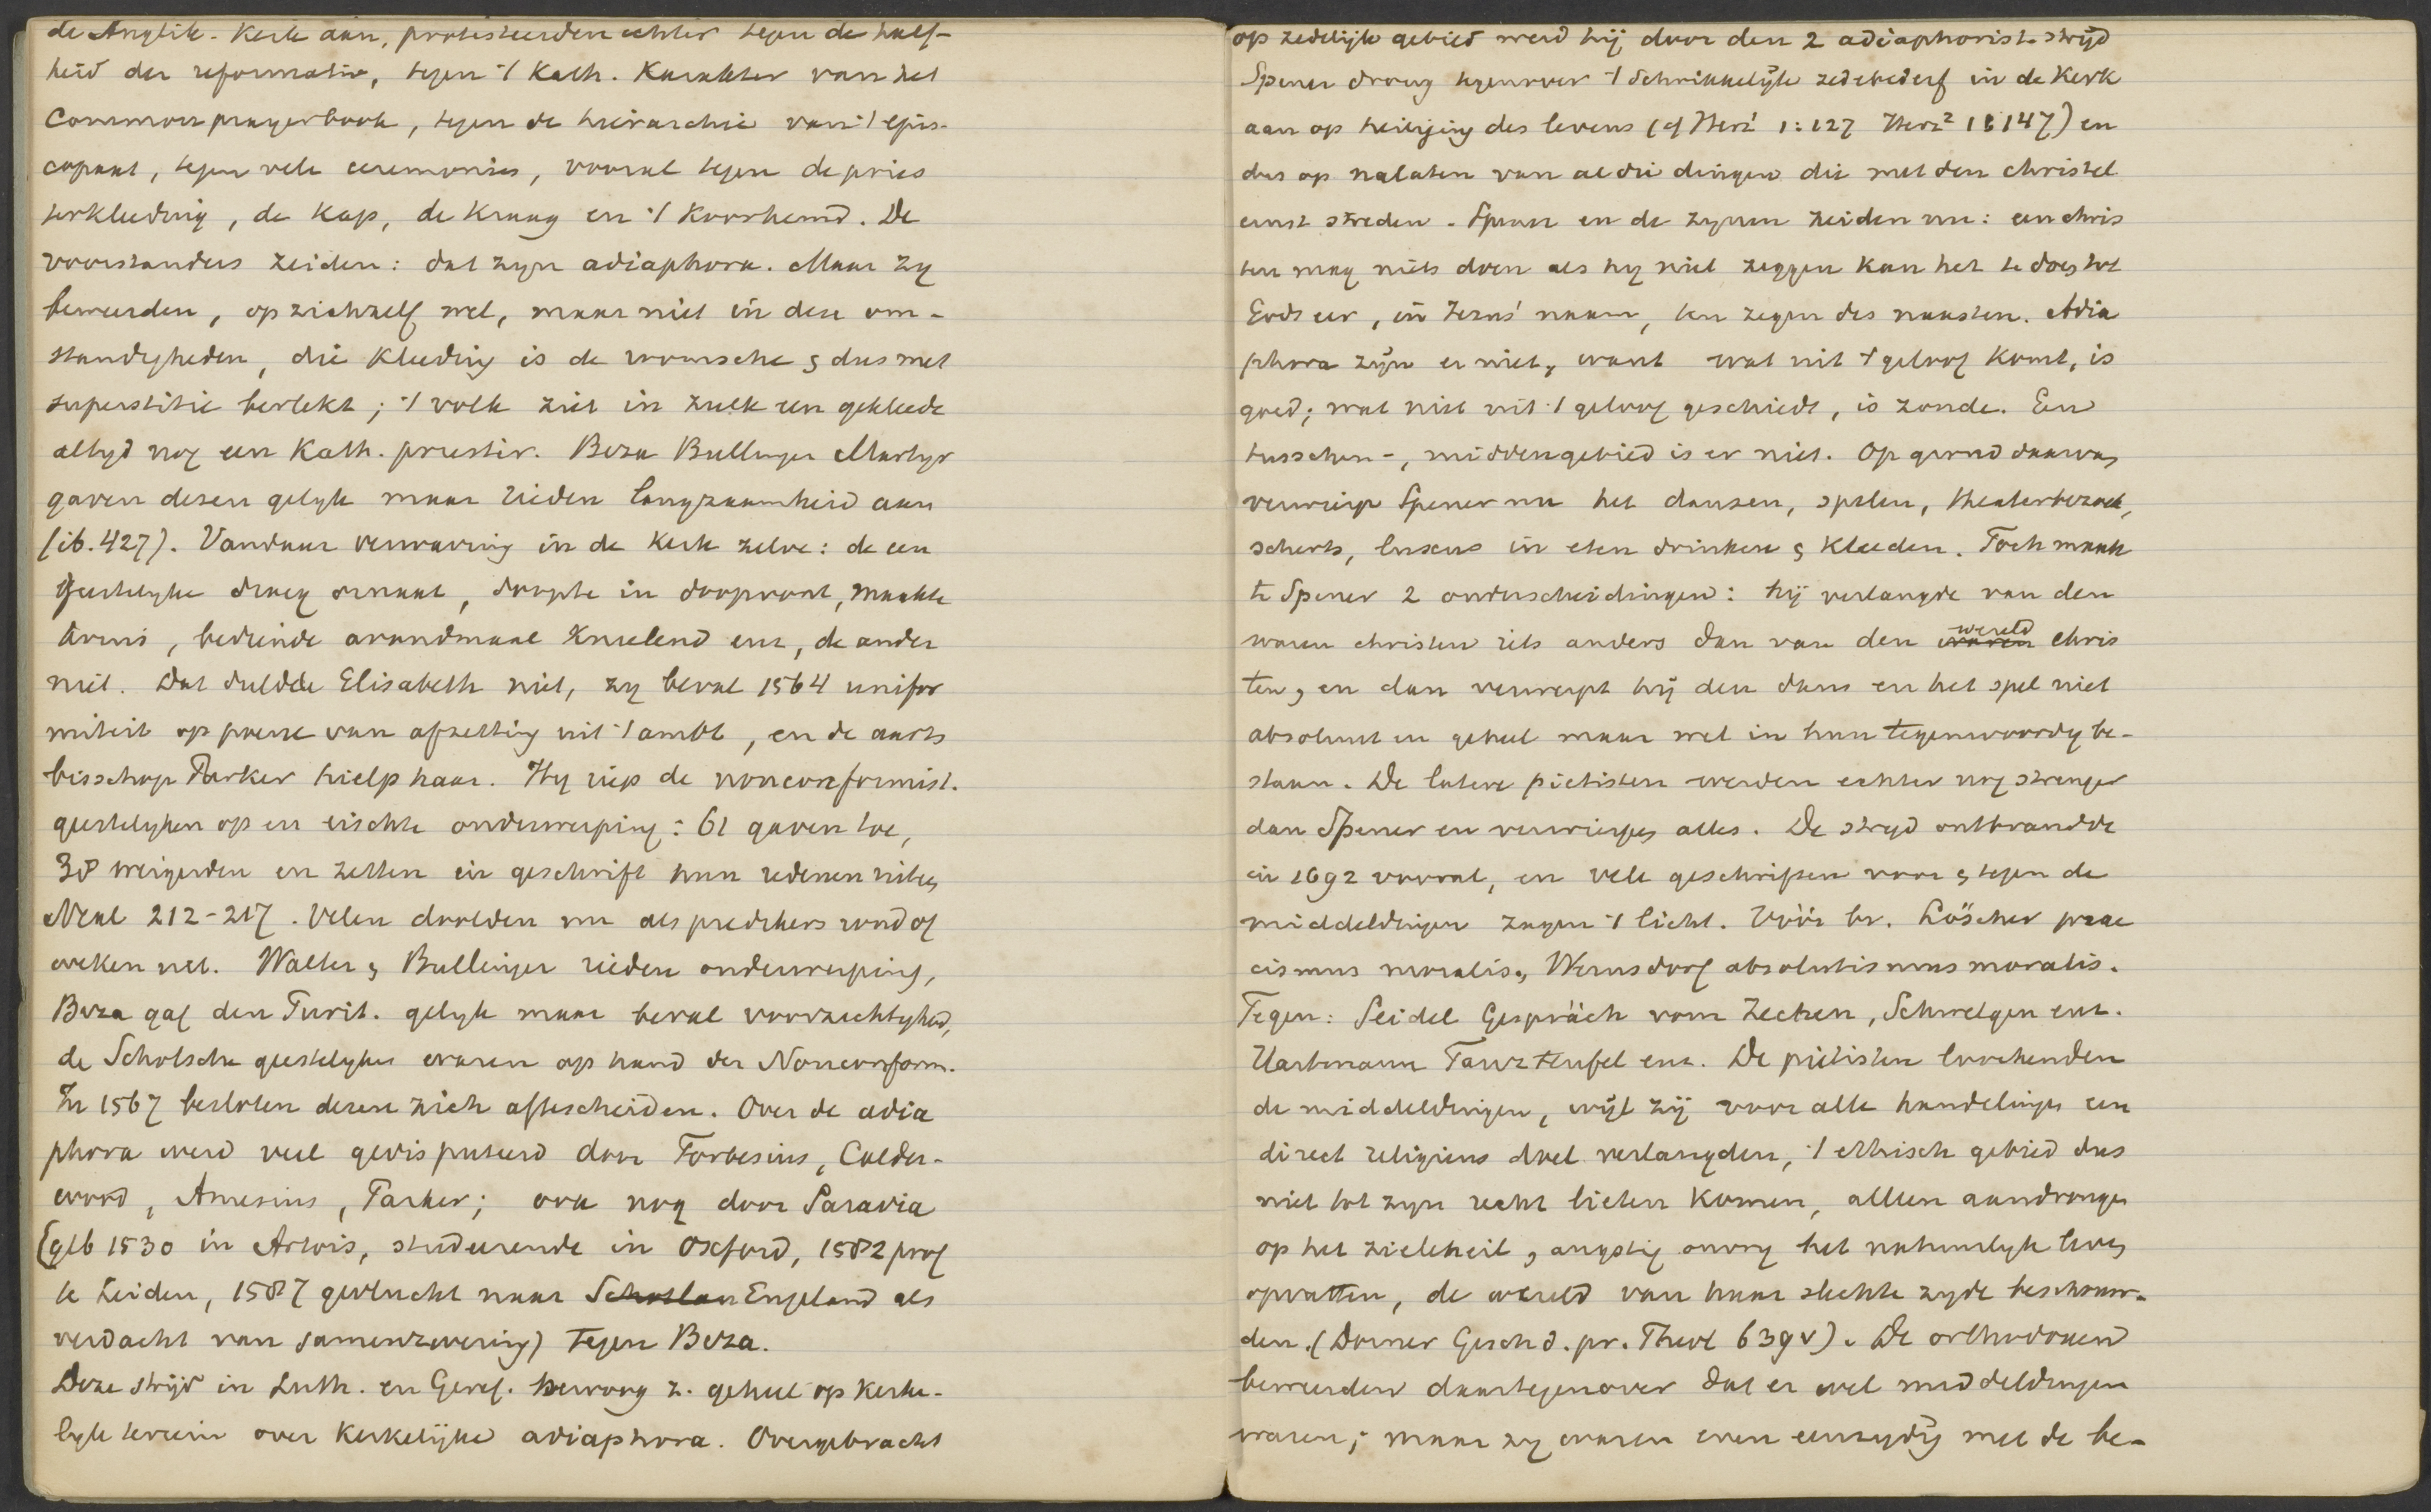 de Anglik. Kerk aan, protesteerden echter tegen de half-
heid der reformatie, tegen 't Kath. Karakter van het
Common prayerbook, tegen de hierarchie van 't epis-
copaat, tegen vele ceremonies, vooral tegen de pries
terkleeding, de Kap, de Kraag en 't Koorhemd. De
voorstanders zeiden: dat zyn adiaphora. Maar zy
beweerden, op zichzelf wel, maar niet in deze om-
standigheden, die Kleeding is de roomsche & dus met
superstitie bevlekt; 't volk ziet in zulk een gekleede
altyd nog een Kath. priester. Beza Bullinger Martyr
gaven dezen gelyk maar rieden langzaamheid aan
(ib. 427). Vandaar verwarring in de Kerk zelve: de een
geestelyke droeg ornaat, doopte in doopvont, maakte
kruis, bediende avondmaal knielend enz, de ander
niet. Dat duldde Elisabeth niet, zy beval 1564 unifor
miteit op poene van afzetting uit 't ambt, en de aarts
bisschop Parker hielp haar. Hy riep de nonconformist.
geestelyken op en eischte onderwerping: 61 gaven toe,
38 weigerden en zetten in geschrift hun redenen uiteen
Neal 212-217. Velen doolden nu als predikers rond of
weken uit. Walter & Bullinger rieden onderwerping,
Beza gaf den Purit. gelyk maar beval voorzichtigheid,
de Schotsche geestelyken waren op hand der Nonconform.
In 1567 besloten dezen zich aftescheiden. Over de adia
phora werd veel gedisputeerd door Forbesius, Calder-
wood, Amesius, Parker; ook nog door Saravia
(geb 1530 in Artois, studeerende in Oxford, 1582 prof
te Leiden, 1587 gevlucht naar Schotlan Engeland als
verdacht van samenzwering) tegen Beza.
Deze stryd in Luth. en Geref. bewoog z. geheel op kerke-
lyk terrein over Kerkelijke adiaphora. Overgebracht
op zedelijk gebied werd hij door den 2 adiaphorist. strijd
Spener drong tegenover 't schrikkelijk zedebederf in de Kerk
aan op heiliging des levens (cf Herz1 1:127 Herz2 18 147) en
dus op nalaten van al die dingen die met den christel
ernst streden. Spener en de zynen zeiden nu: een chris
ten mag niets doen als hy niet zeggen kan het te doen tot
Gods eer, in Jezus' naam, ten zegen des naasten. Adia
phora zijn er niet, want wat uit 't geloof komt, is
goed; wat niet uit 't geloof geschiedt, is zonde. Een
tusschen-, middengebied is er niet. Op grond daarvan
verwierp Spener nu het dansen, spelen, theaterbezoek,
scherts, luxus in eten drinken & kleeden. Toch maak
te Spener 2 onderscheidingen: hij verlangde van den
waren christen iets anders dan van den waren wereld chris
ten, en dan verwerpt hij den dans en het spel niet
absoluut en geheel maar wel in hun tegenwoordig be-
staan. De latere pietisten werden echter nog strenger
dan Spener en verwierpen alles. De stryd ontbrandde
in 1692 vooral, en vele geschriften voor & tegen de
middeldingen zagen 't licht. Vóór bv. Löscher prae
cismus moralis, Wernsdorf absolutismus moralis.
Tegen: Seidel Gespräch vom Zechen, Schwelgen enz.
Hartmann Tanzteufel enz. De pietisten loochenden
de middeldingen, wijl zij voor alle handelingen een
direct religieus doel verlangden, 't ethisch gebied dus
niet tot zyn recht lieten komen, alleen aandrongen
op het zieleheil, angstig het natuurlyk leven
opvatten, de wereld van haar slechte zyde beschouw-
den. (Dorner Gesch d. pr. Theol 639v). De orthodoxen
beweerden daartegenover dat er wel middeldingen
waren; maar zy waren even eenzydig met de be-